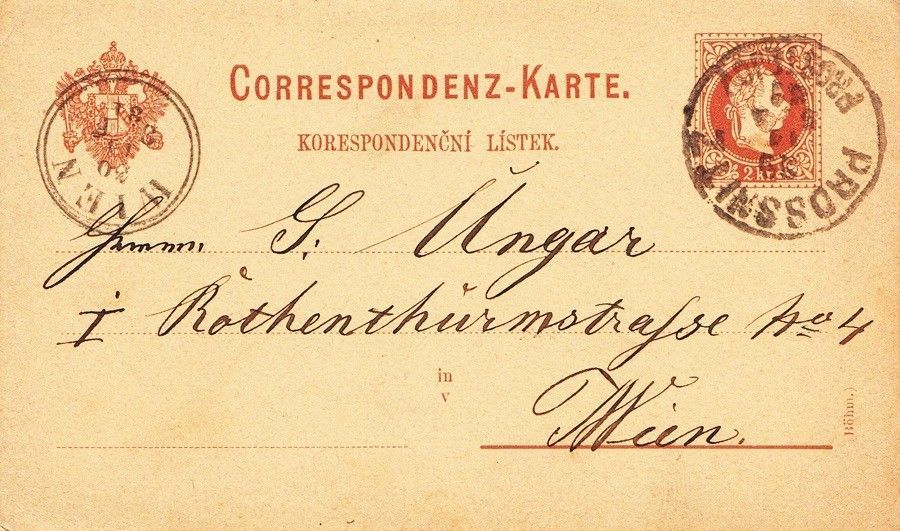 CORRESPONDENZ-KARTE.
KORESPONDENČNÍ LÍSTEK.
WIEN
PROSSNITZ
2 kr.
Herrn S. Ungar
I Rothenthurmstrasse No 4
in
v
Wien.
(Böhm.)